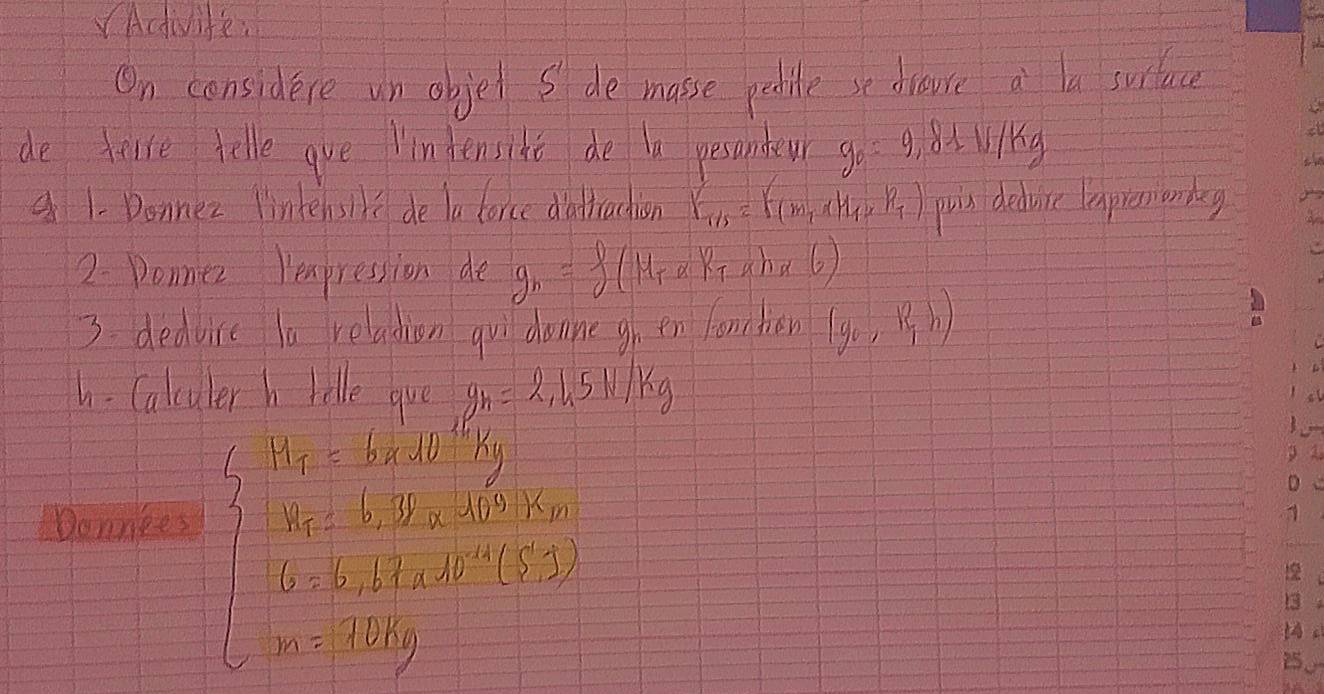 Activité:
On considère un objet S de masse petite se trouve à la surface
de terre telle que l'intensité de la pesanteur g₀ = 9,81 N/Kg
1- Donnez l'intensité de la force d'attraction puis deduire l'expression de g
2- Donnez l'expression de gₕ = f(M_T x R_T x h x G)
3- déduire la relation qui donne gₕ en fonction (g₀, R, h)
4- Calculer h telle que gₕ = 2,45 N/Kg
M_T = 6 x 10 Kg
Données
R_T = 6,38 x 10 Km
G = 6,67 x 10⁻¹¹ (S.I)
m = 10Kg